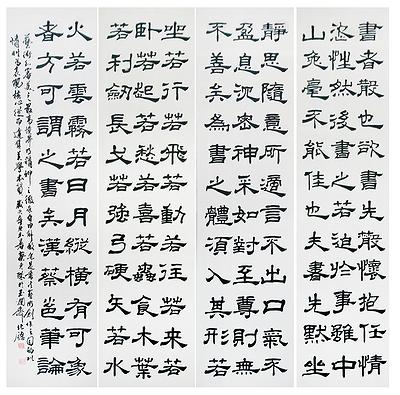 書者散也欲書先散懷抱任情
恣性然後書之若迫於事雖中
山兔毫不能佳也夫書先默坐
靜思隨意所適言不出口氣不
盈息沉密神彩如對至尊則無
不善矣為書之體須入其形若
坐若行若飛若動若往若來若
臥若起若愁若喜若蟲食木葉
若利劍長戈若強弓硬矢若水
火若雲霧若日月縱橫有可象
者方可謂之書矣蔡邕筆論